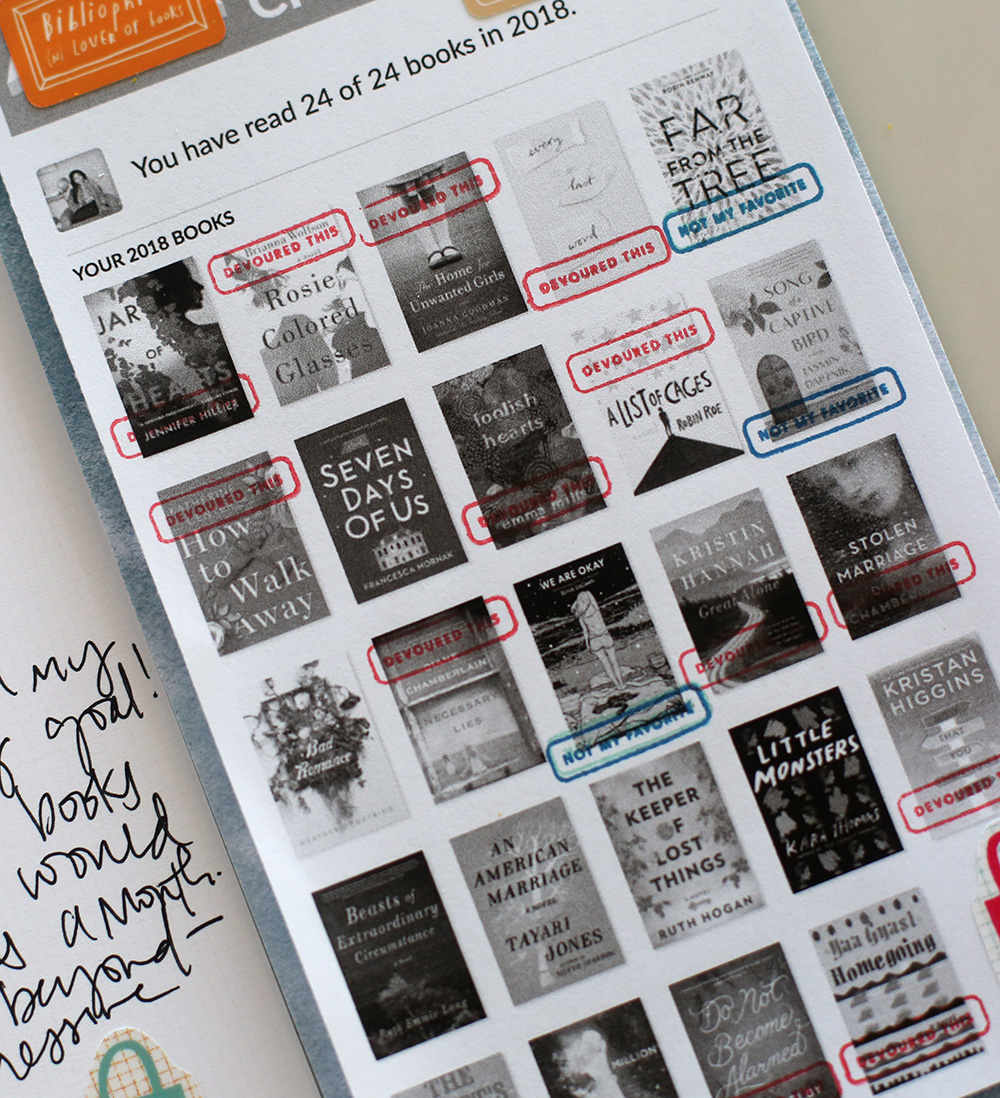 Bibliophi
(n) LOVER OF books
You have read 24 of 24 books in 2018.
YOUR 2018 BOOKS
JAR
OF
HEARTS
JENNIFER HILLIER
Brianna Wolfson
DEVOURED THIS
Rosie
Colored
Glasses
DEVOURED THIS
The Home for
Unwanted Girls
JOANNA GOODMAN
every
last
word
DEVOURED THIS
ROBIN BENWAY
FAR
FROM THE
TREE
NOT MY FAVORITE
DEVOURED THIS
How
to
Walk
Away
SEVEN
DAYS
OF US
FRANCESCA HORNAK
foolish
hearts
DEVOURED THIS
emma mills
DEVOURED THIS
A LIST OF CAGES
ROBIN ROE
SONG
of a
CAPTIVE
BIRD
JASMIN
DARZNIK
NOT MY FAVORITE
Bad
Romance
DEVOURED THIS
CHAMBERLAIN
NECESSARY
LIES
WE ARE OKAY
NOT MY FAVORITE
KRISTIN
HANNAH
Great Alone
STOLEN
MARRIAGE
Beasts of
Extraordinary
Circumstance
Ruth Emmie Lang
AN
AMERICAN
MARRIAGE
A NOVEL
TAYARI
JONES
THE
KEEPER
OF
LOST
THINGS
RUTH HOGAN
LITTLE
MONSTERS
KARA THOMAS
KRISTAN
HIGGINS
THAT
YOU
DEVOURED
THE
MILLION
Do Not
Become
Alarmed
Yaa Gyasi
Homegoing
DEVOURED THIS
my
goal!!
books
would
a Month.
beyond –